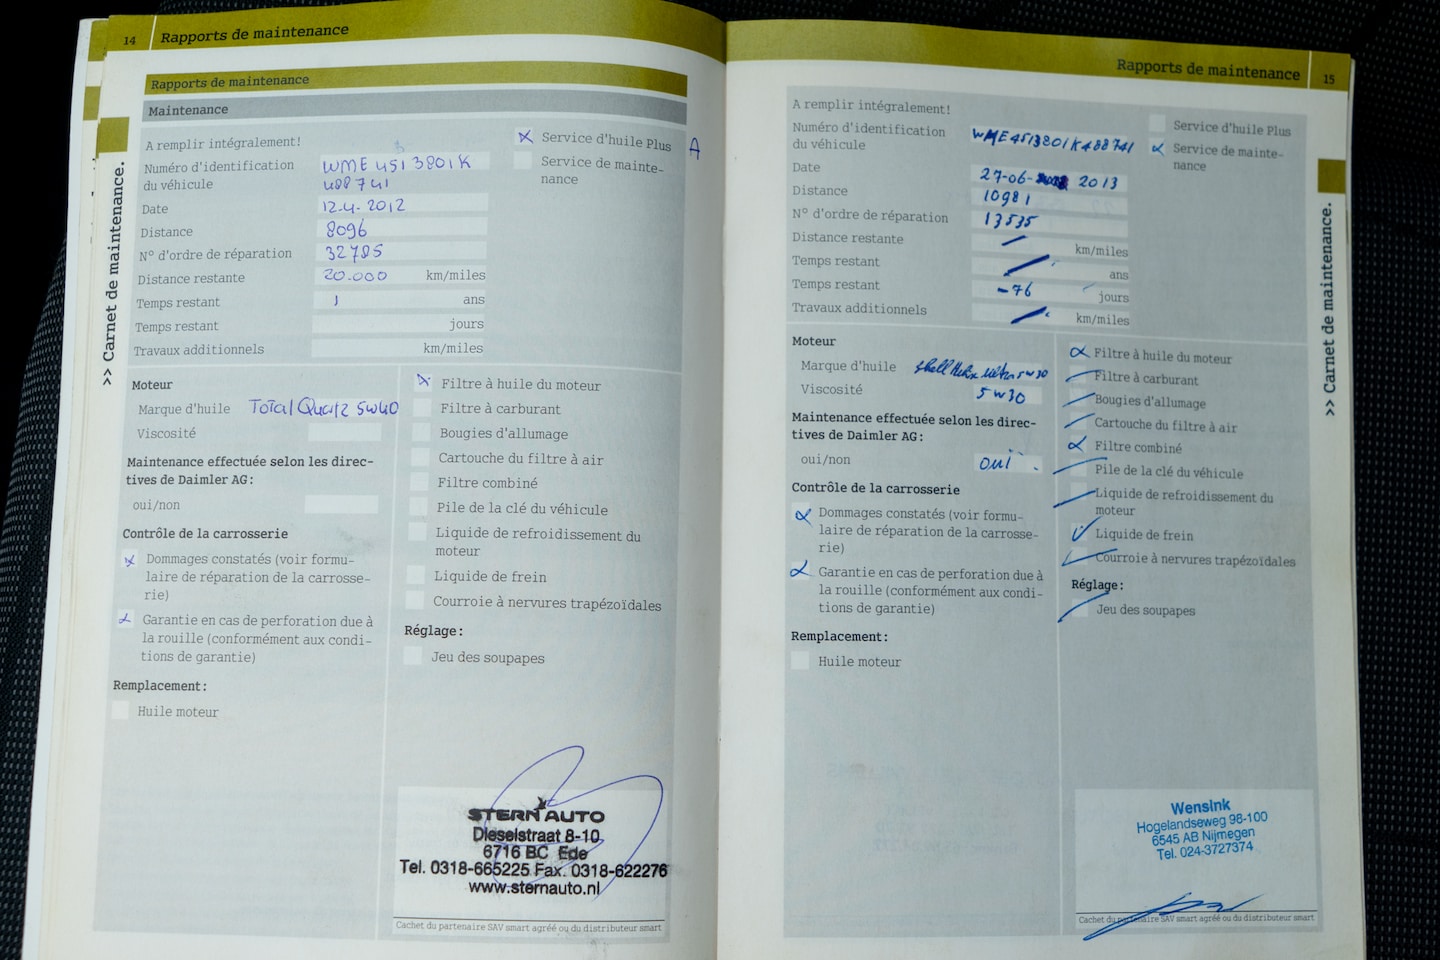 14 Rapports de maintenance
>> Carnet de maintenance.
Rapports de maintenance
Maintenance
A remplir intégralement!
Numéro d'identification WME 451 3801K
du véhicule 488741
Date 12.4.2012
Distance 8096
N° d'ordre de réparation 32785
Distance restante 20.000 km/miles
Temps restant 1 ans
Temps restant jours
Travaux additionnels km/miles
x Service d'huile Plus A
Service de mainte-
nance
Moteur
Marque d'huile Total Quartz 5W40
Viscosité
Maintenance effectuée selon les direc-
tives de Daimler AG:
oui/non
Contrôle de la carrosserie
x Dommages constatés (voir formu-
laire de réparation de la carrosse-
rie)
x Garantie en cas de perforation due à
la rouille (conformément aux condi-
tions de garantie)
Remplacement:
Huile moteur
x Filtre à huile du moteur
Filtre à carburant
Bougies d'allumage
Cartouche du filtre à air
Filtre combiné
Pile de la clé du véhicule
Liquide de refroidissement du
moteur
Liquide de frein
Courroie à nervures trapézoïdales
Réglage:
Jeu des soupapes
STERN AUTO
Dieselstraat 8-10
6716 BC Ede
Tel. 0318-665225 Fax. 0318-622276
www.sternauto.nl
Cachet du partenaire SAV smart agréé ou du distributeur smart
Rapports de maintenance 15
>> Carnet de maintenance.
A remplir intégralement!
Numéro d'identification WME4513801K488741
du véhicule
Date 27-06- 2013
Distance 10981
N° d'ordre de réparation 13535
Distance restante km/miles
Temps restant ans
Temps restant -76 jours
Travaux additionnels km/miles
Service d'huile Plus
x Service de mainte-
nance
Moteur
Marque d'huile Shell Helix ultra 5w30
Viscosité 5w30
Maintenance effectuée selon les direc-
tives de Daimler AG:
oui/non oui
Contrôle de la carrosserie
x Dommages constatés (voir formu-
laire de réparation de la carrosse-
rie)
x Garantie en cas de perforation due à
la rouille (conformément aux condi-
tions de garantie)
Remplacement:
Huile moteur
x Filtre à huile du moteur
Filtre à carburant
Bougies d'allumage
Cartouche du filtre à air
x Filtre combiné
Pile de la clé du véhicule
Liquide de refroidissement du
moteur
Liquide de frein
Courroie à nervures trapézoïdales
Réglage:
Jeu des soupapes
Wensink
Hogelandseweg 98-100
6545 AB Nijmegen
Tel. 024-3727374
Cachet du partenaire SAV smart agréé ou du distributeur smart